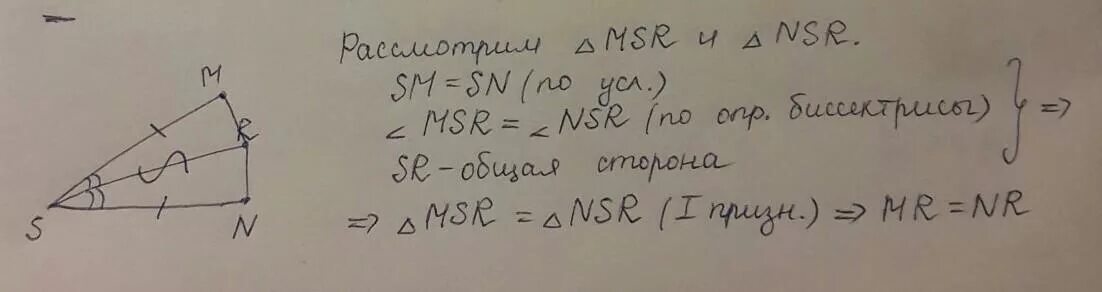 Рассмотрим △MSR и △NSR.
SM = SN (по усл.)
∠MSR = ∠NSR (по опр. биссектрисы) } ⇒
SR - общая сторона
⇒ △MSR = △NSR (I призн.) ⇒ MR = NR
M
R
S
N